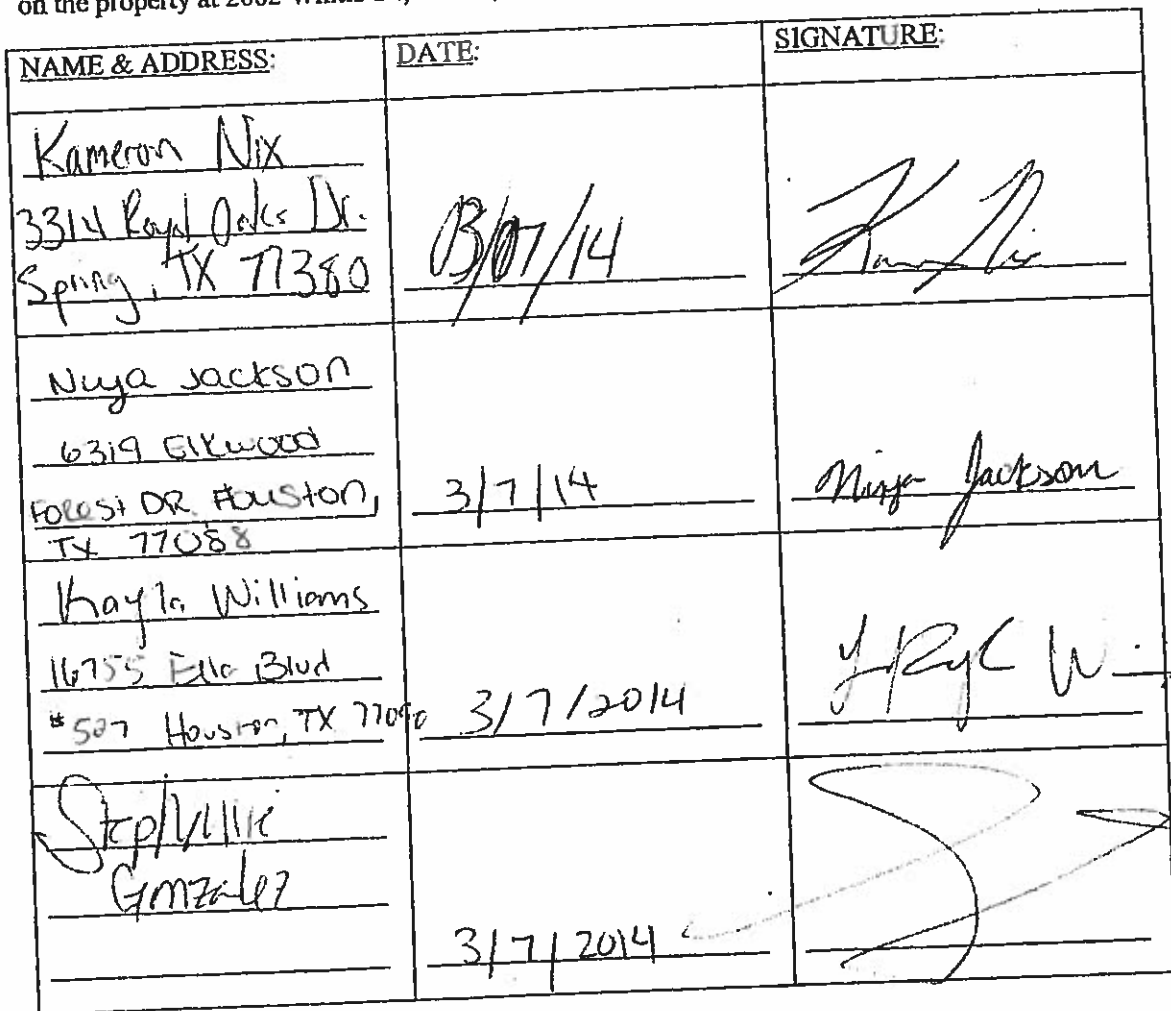 on the property at 2002
NAME & ADDRESS: DATE: SIGNATURE:
Kameron Nix
3314 Royal Oaks Dr.
Spring, TX 77380
03/07/14
Nuya Jackson
6319 Elkwood
Forest DR Houston,
TX 77088
3/7/14
Jackson
Kayla Williams
16755 Ella Blvd
#507 Houston, TX 77090
3/7/2014
Stephanie
Gonzalez
3/7/2014